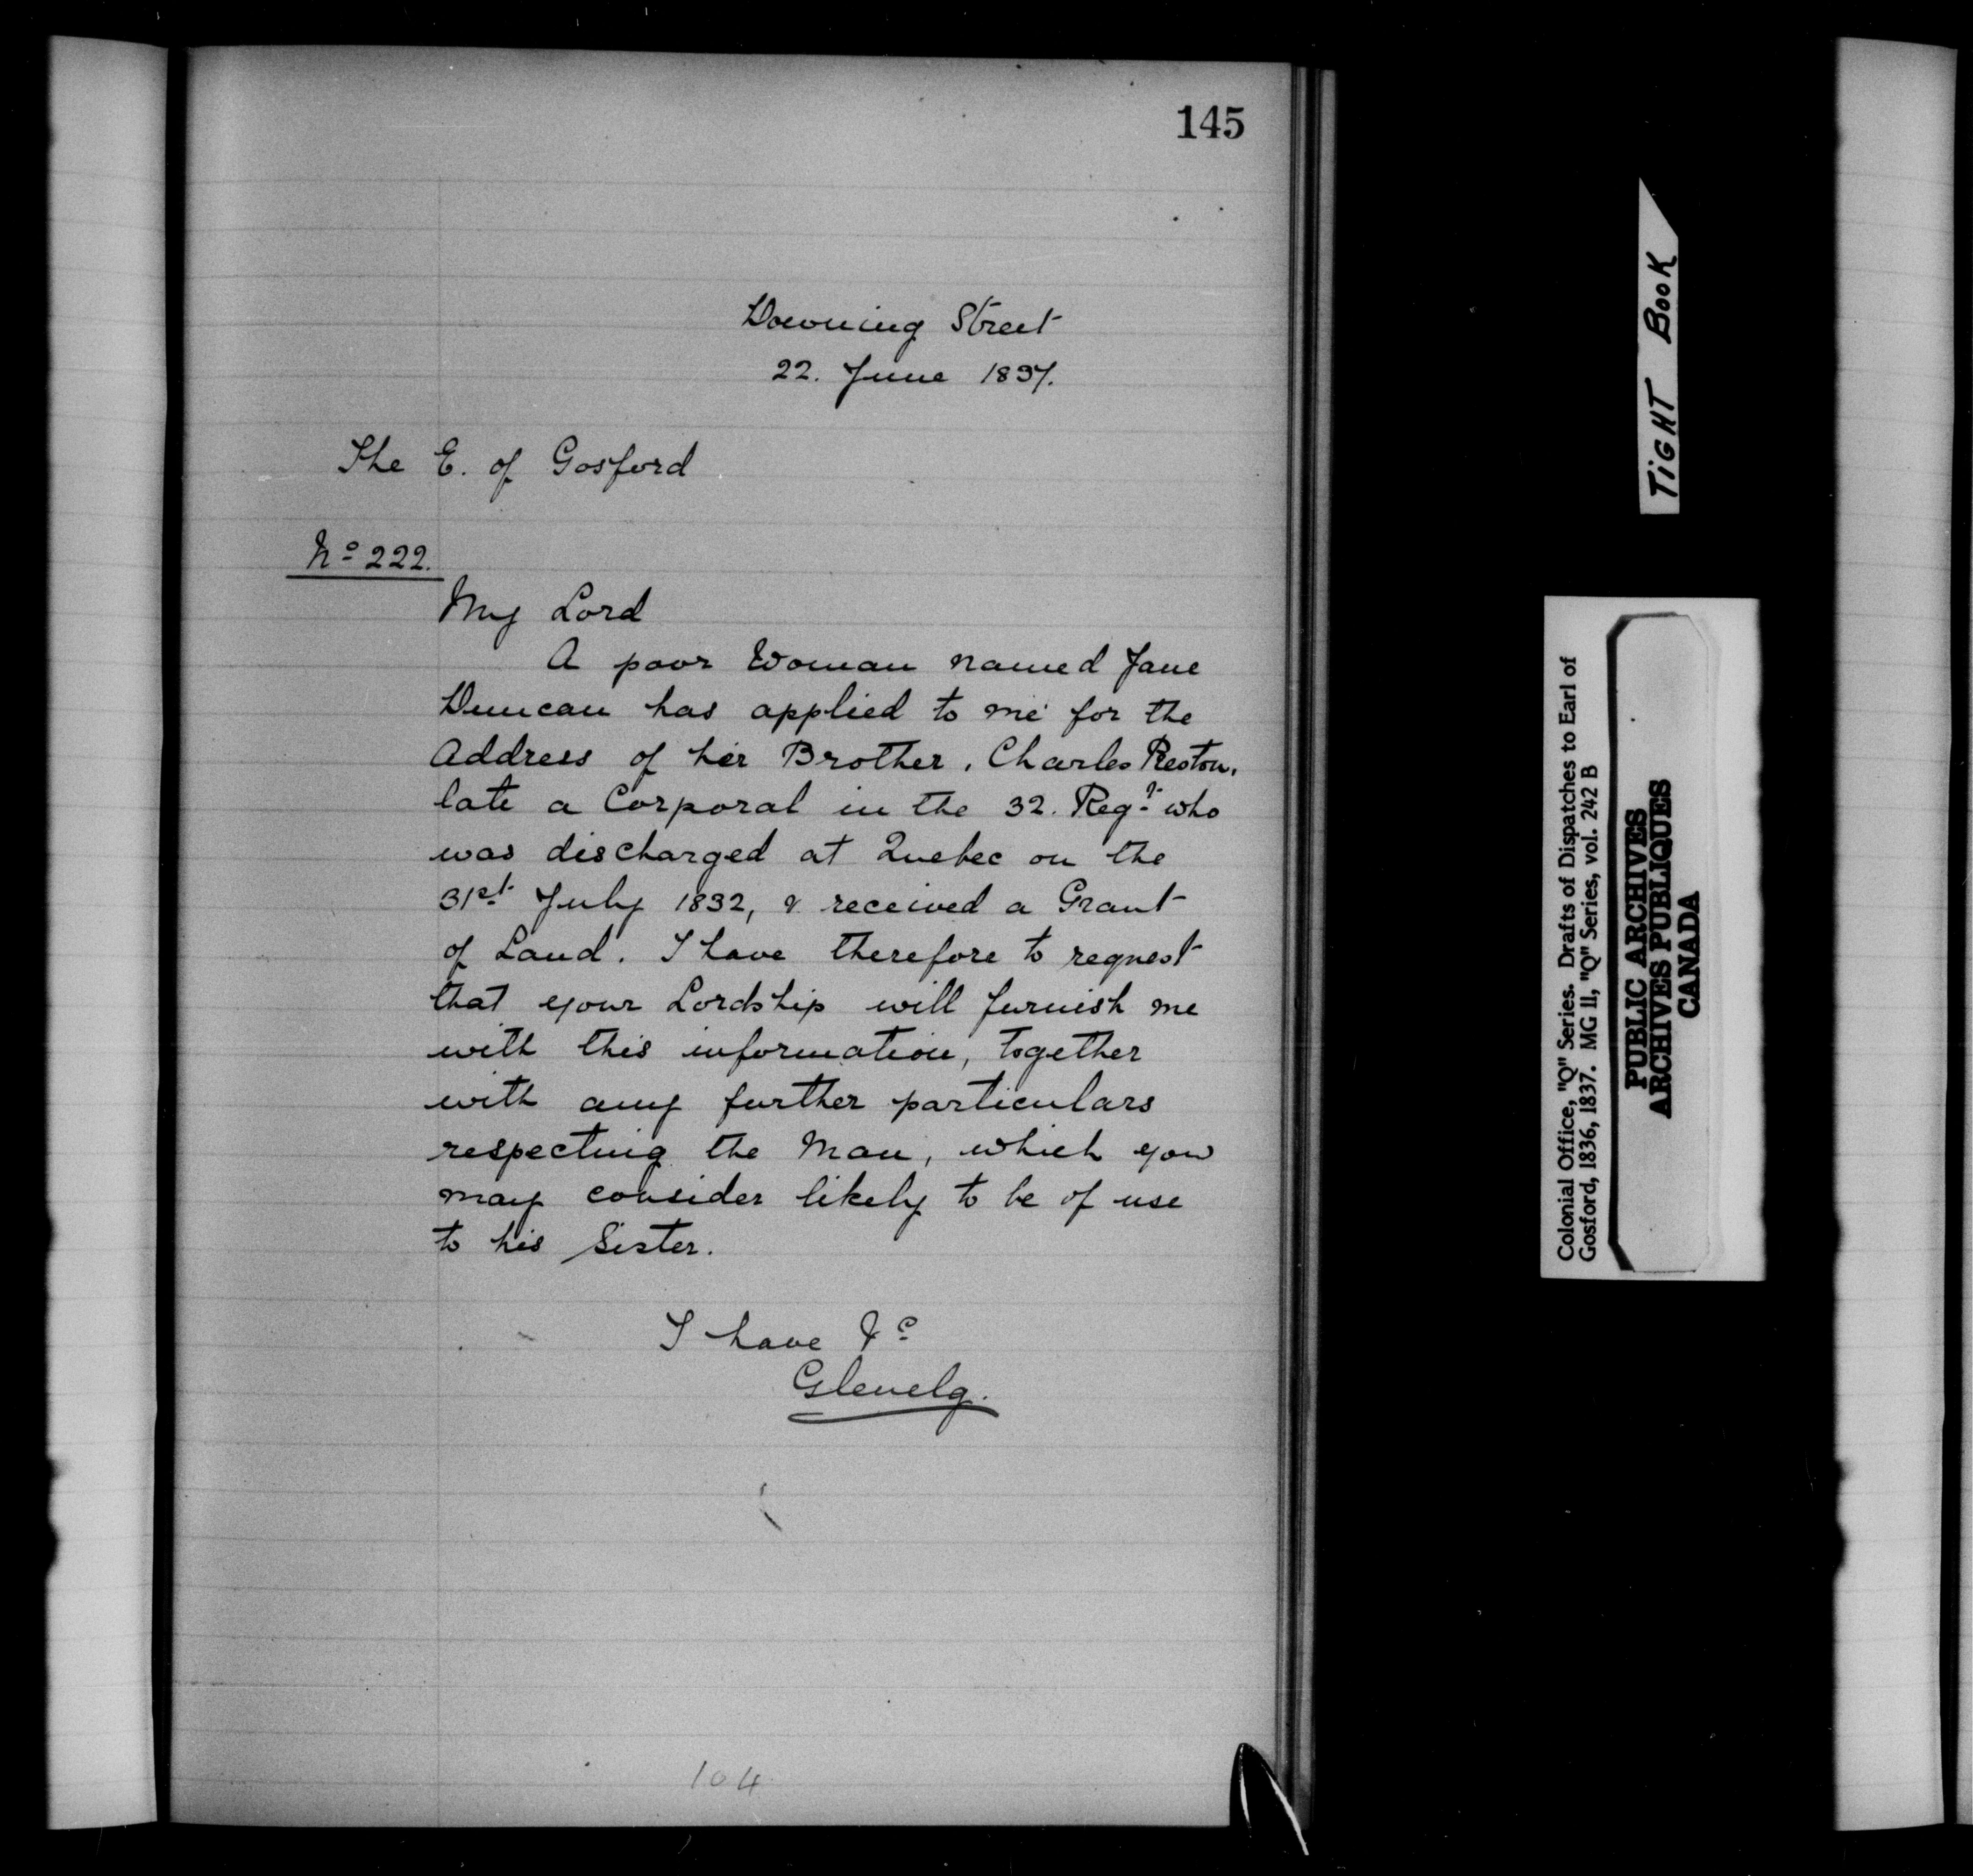 145
Downing Street
22. June 1837.
The E. of Gosford
No 222.
My Lord
A poor Woman named Jane
Duncan has applied to me for the
Address of her Brother, Charles Preston,
late a Corporal in the 32. Regt. who
was discharged at Quebec on the
31st July 1832, & received a Grant
of Land. I have therefore to request
that your Lordship will furnish me
with this information, together
with any further particulars
respecting the Man, which you
may consider likely to be of use
to his Sister.
I have &c
Glenelg.
104
TIGHT BOOK
Colonial Office, "Q" Series. Drafts of Dispatches to Earl of
Gosford, 1836, 1837. MG 11, "Q" Series, vol. 242 B
PUBLIC ARCHIVES
ARCHIVES PUBLIQUES
CANADA